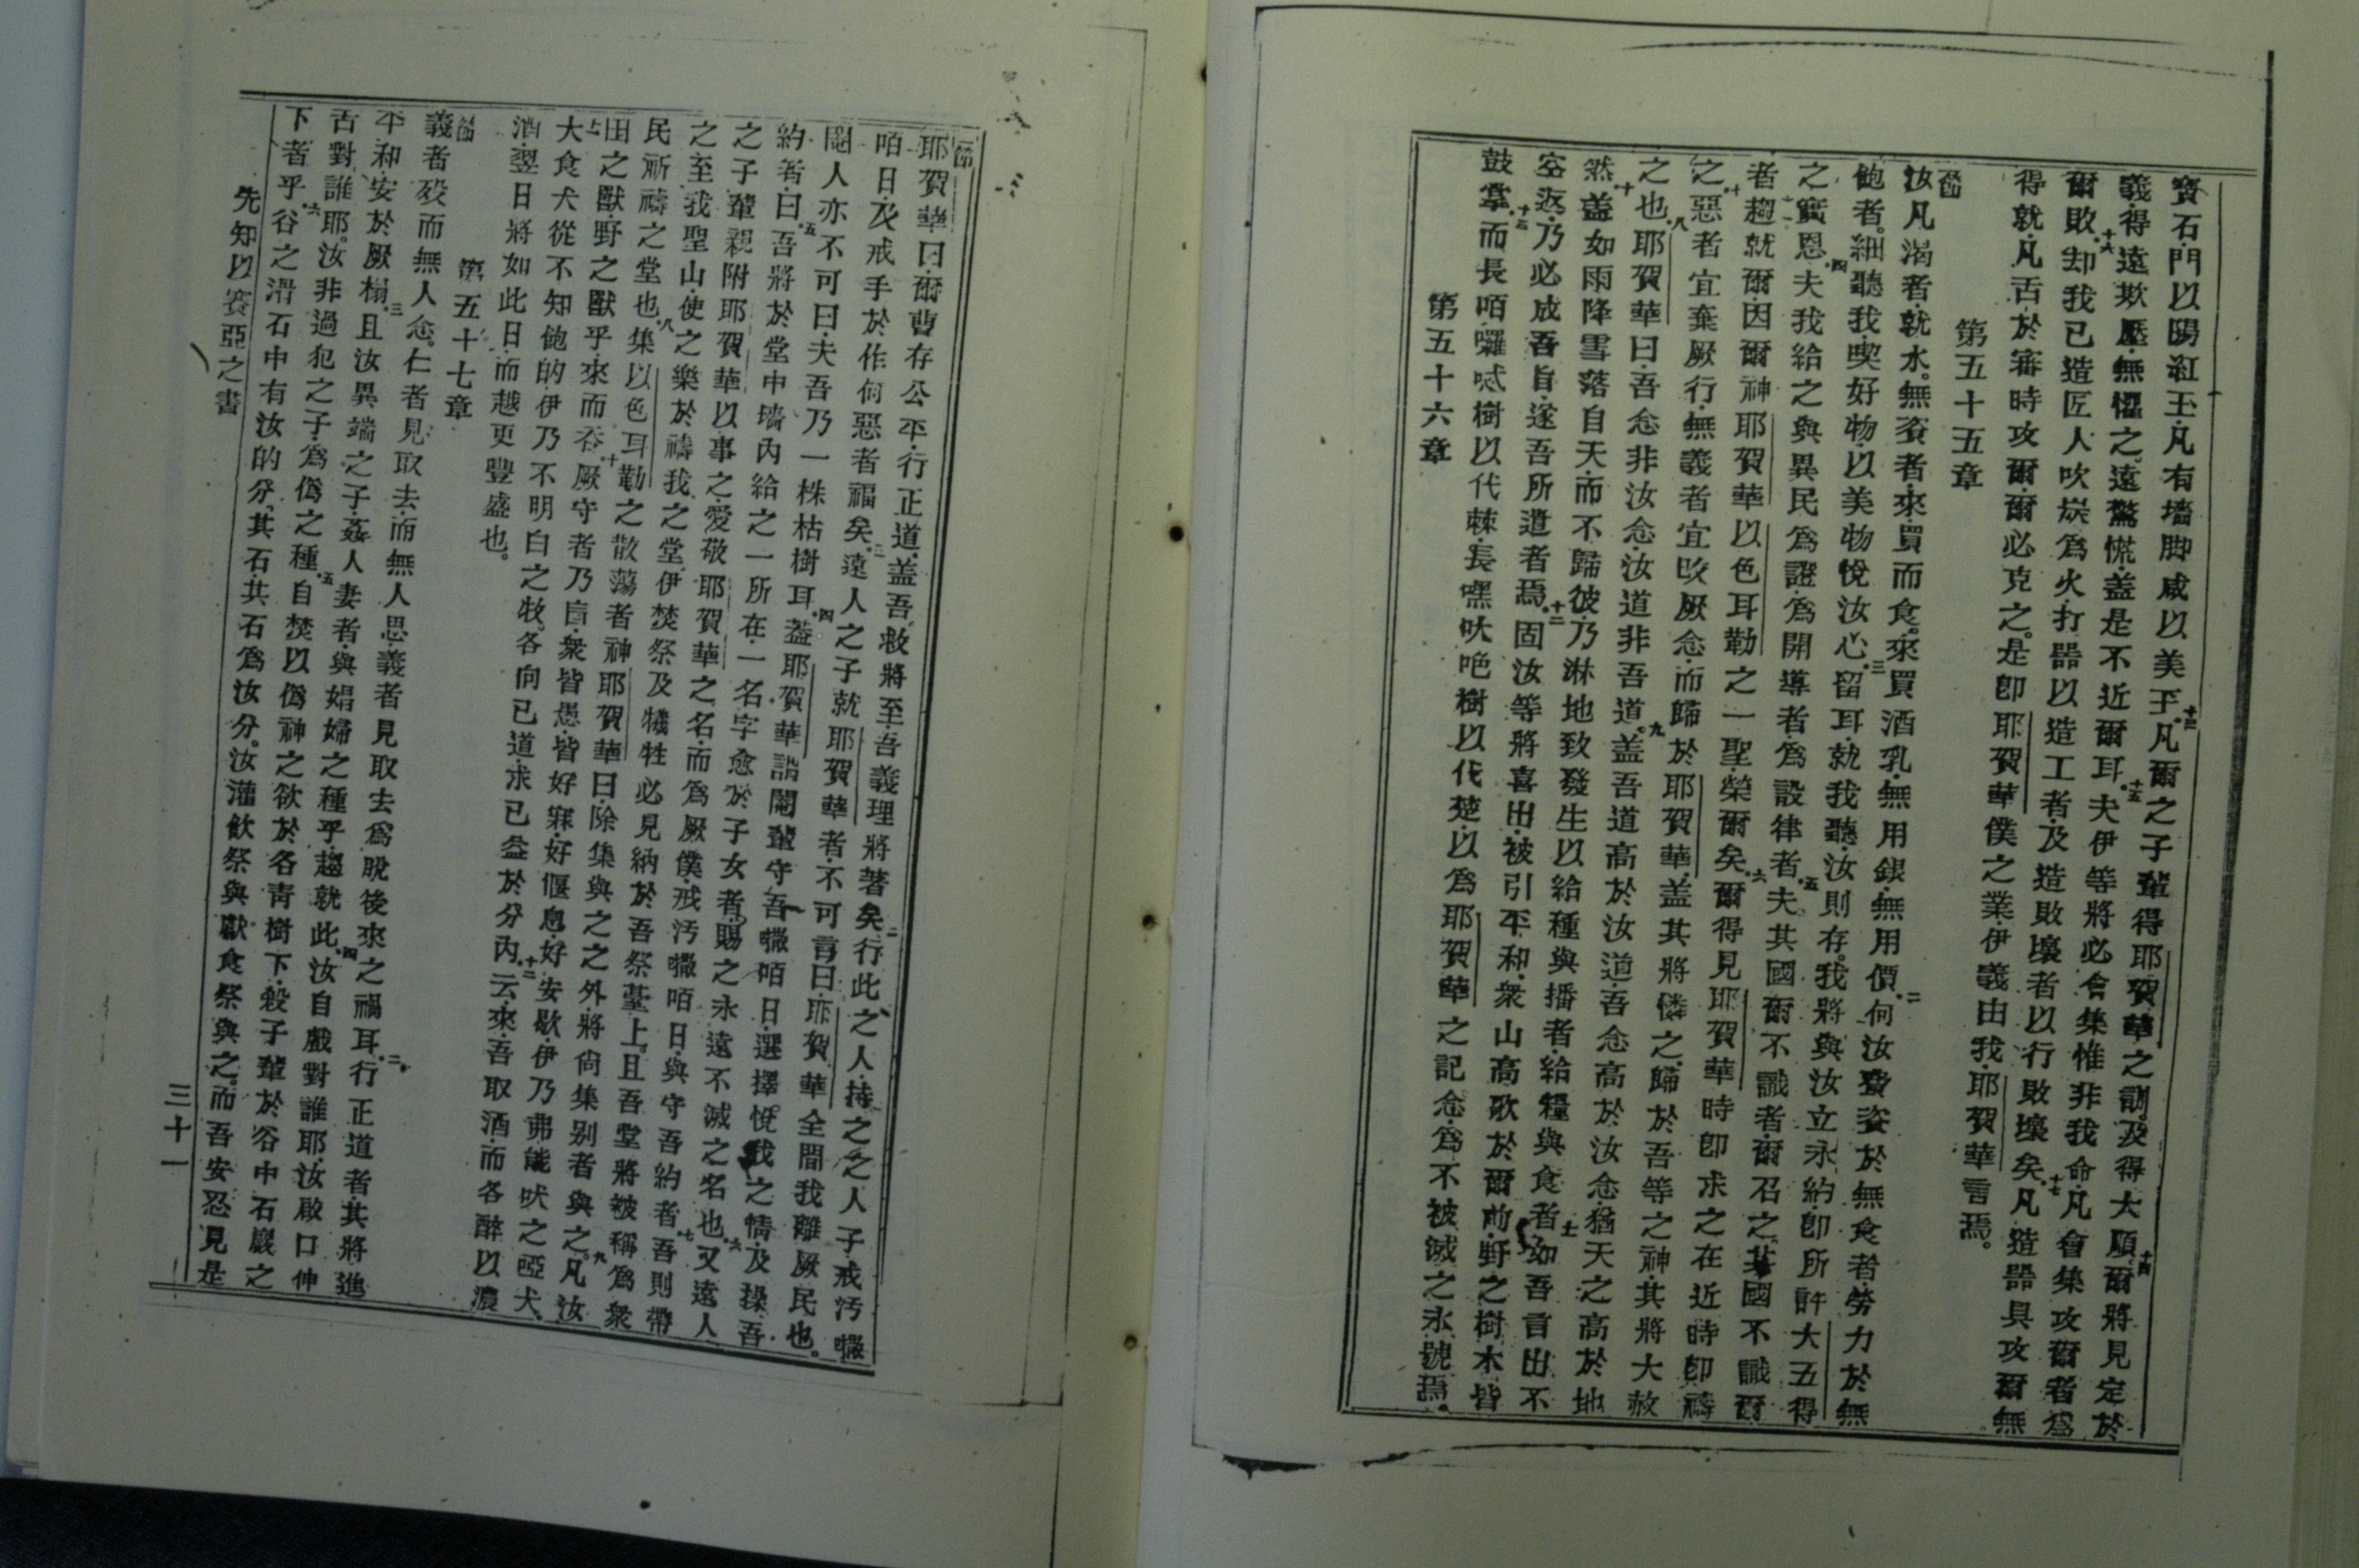 寶石門以陽紅玉凡有墻脚咸以美玉十三凡爾之子輩得耶賀華之訓及得大順十四爾將見定於
義得遠欺壓無懼之遠驚慌盖是不近爾耳十五夫伊等將必會集惟非我命凡會集攻爾者爲
爾敗十六却我已造匠人吹炭爲火打器以造工者及造敗壞者以行敗壞矣十七凡造器具攻爾無
得就凡舌於審時攻爾爾必克之是卽耶賀華僕之業伊義由我耶賀華言焉
第五十五章
節
汝凡渴者就水無資者來買而食來買酒乳無用銀無用價二何汝費姿於無食者勞力於無
飽者細聽我喫好物以美物悅汝心三留耳就我聽汝則存我將與汝立永約卽所許大五得
之實恩四夫我給之與異民爲證爲開導者爲設律者五夫其國爾不識者爾召之其國不識爾
者趨就爾因爾神耶賀華以色耳勒之一聖榮爾矣六爾得見耶賀華時卽求之在近時卽禱
之七惡者宜棄厥行無義者宜改厥念而歸於耶賀華盖其將憐之歸於吾等之神其將大赦
之也八耶賀華曰吾念非汝念汝道非吾道九盖吾道高於汝道吾念高於汝念猶天之高於地
然十盖如雨降雪落自天而不歸彼乃淋地致發生以給種與播者給糧與食者十一如吾言出不
空返乃必成吾旨遂吾所遣者焉十二固汝等將喜出被引平和衆山高歌於爾前野之樹木皆
鼓掌十三而長咟囉忒樹以代棘長嘿吠吔樹以代楚以爲耶賀華之記念爲不被滅之永號焉
第五十六章
節
耶賀華曰爾曹存公平行正道盖吾救將至吾義理將著矣二行此之人持之之人子戒汚嚫
咟日及戒手於作何惡者福矣三遠人之子就耶賀華者不可言曰耶賀華全間我離厥民也
閹人亦不可曰夫吾乃一株枯樹耳四蓋耶賀華謂閹輩守吾嚫咟日選擇悅我之情及操吾
約者曰五吾將於堂中墻內給之一所在一名字愈於子女者賜之永遠不滅之名也六又遠人
之子輩親附耶賀華以事之愛敬耶賀華之名而爲厥僕戒汚嚫咟日與守吾約者七吾則帶
之至我聖山使之樂於禱我之堂伊焚祭及犧牲必見納於吾祭臺上且吾堂將被稱爲衆
民所禱之堂也八集以色耳勒之散蕩者神耶賀華曰除集與之之外將尙集别者與之九凡汝
田之獸野之獸乎來而吞十厥守者乃盲衆皆愚皆好寐好偃息好安歇伊乃弗能吠之啞犬
十一大食犬從不知飽的伊乃不明白之牧各向已道求已益於分內十二云來吾取酒而各醉以濃
酒翌日將如此日而越更豐盛也
第五十七章
節
義者歿而無人念仁者見取去而無人思義者見取去爲脫後來之禍耳二行正道者其將進
平和安於厥榻三且汝異端之子姦人妻者與娼婦之種乎趨就此四汝自戲對誰耶汝啟口伸
舌對誰耶汝非過犯之子爲僞之種五自焚以僞神之欲於各靑樹下殺子輩於谷中石巖之
下者乎六谷之滑石中有汝的分其石其石爲汝分汝灌飮祭與獻食祭與之而吾安忍見是
先知以賽亞之書
三十一